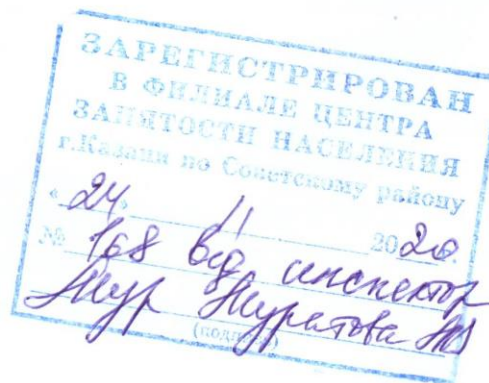 ЗАРЕГИСТРИРОВАН
В ФИЛИАЛЕ ЦЕНТРА
ЗАНЯТОСТИ НАСЕЛЕНИЯ
г.Казани по Советскому району
«24» 11 2020
№ 168 вед инспектор
Муратова
(подпись)